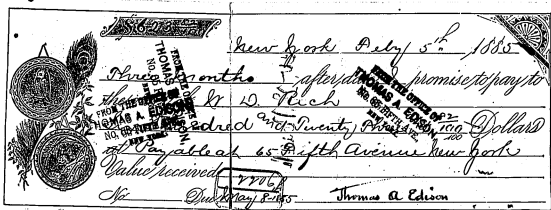 New York Feby 5th 1885
Three months after date I promise to pay to
the W. D. Rich
Hundred and Twenty Three 82/100 Dollars
at Payable at 65 Fifth Avenue New York
Value received
No Due May 8-1885 Thomas A Edison
2206
FROM THE OFFICE OF
THOMAS A. EDISON
NO. 65 FIFTH AVE.
NEW YORK
FROM THE OFFICE OF
THOMAS A. EDISON
NO. 65 FIFTH AVE.
NEW YORK
FROM THE OFFICE OF
THOMAS A. EDISON
NO. 65 FIFTH AVE.
NEW YORK